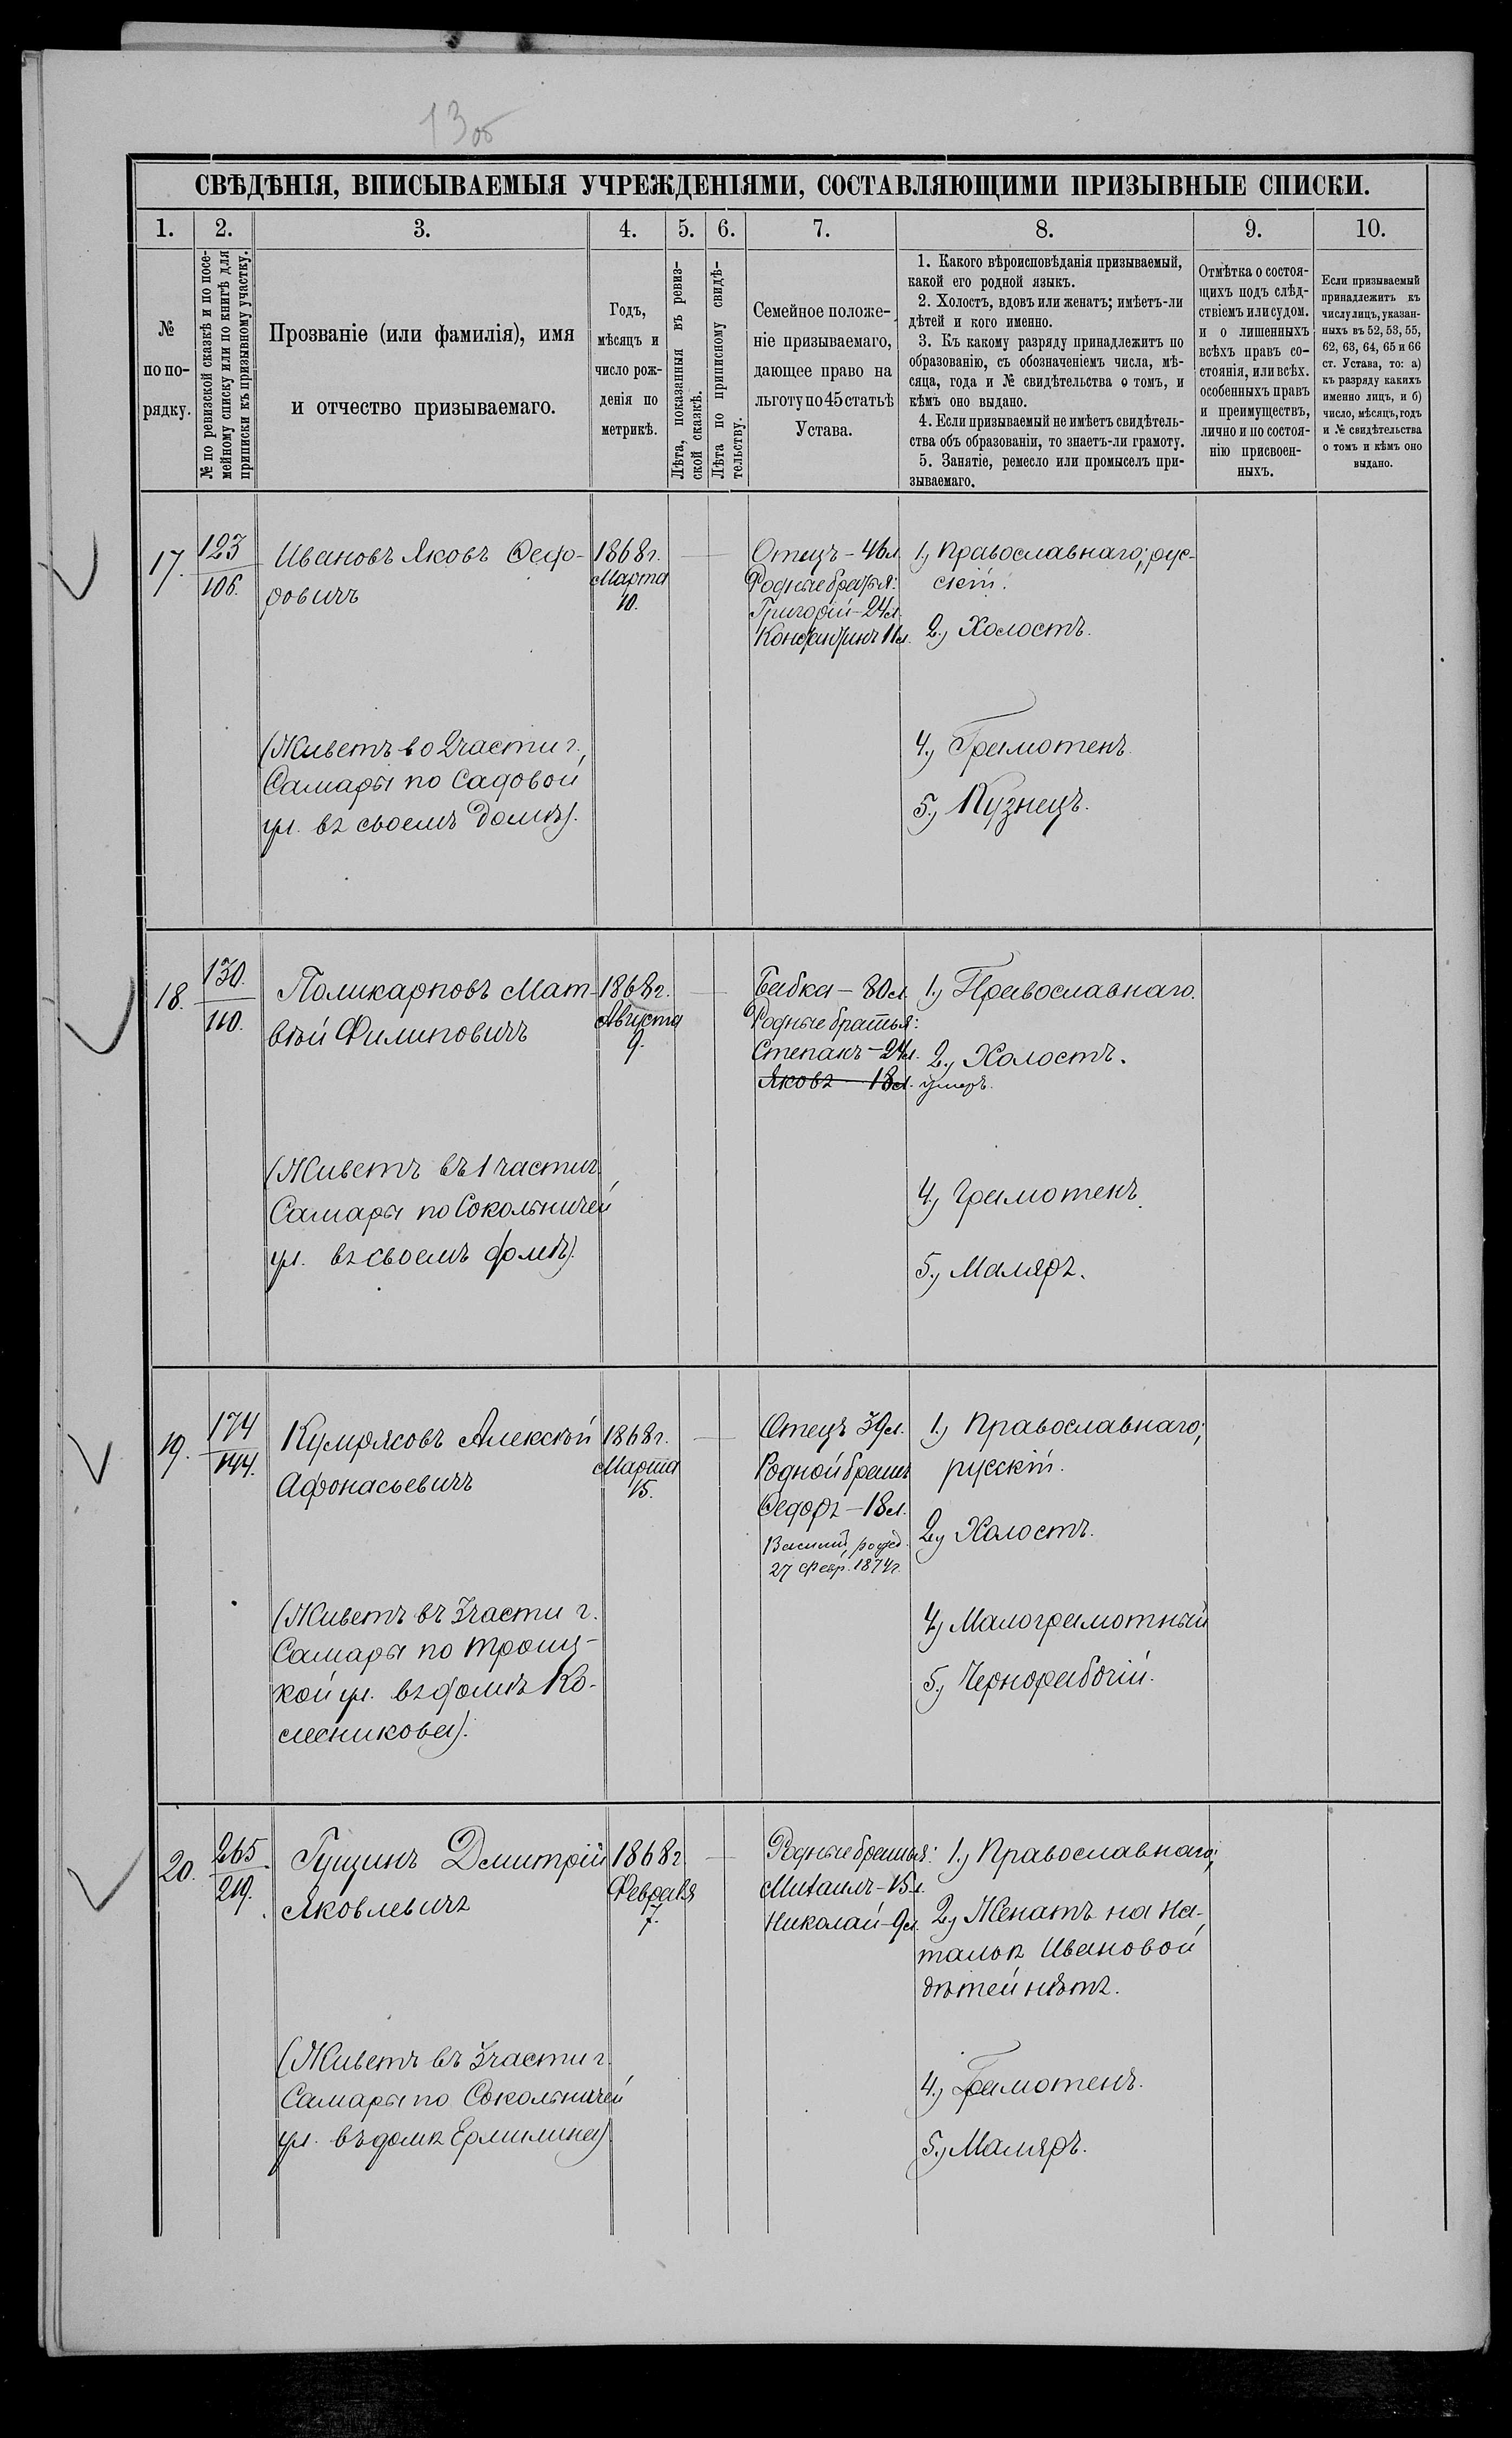 13 об
СВѢДѢНІЯ, ВПИСЫВАЕМЫЯ УЧРЕЖДЕНІЯМИ, СОСТАВЛЯЮЩИМИ ПРИЗЫВНЫЕ СПИСКИ.
1. 2. 3. 4. 5. 6. 7. 8. 9. 10.
№
по по-
рядку.
№ по ревизской сказкѣ и по посе-
мейному списку или по книгѣ для
приписки къ призывному участку.
Прозваніе (или фамилія), имя
и отчество призываемаго.
Годъ,
мѣсяцъ и
число рож-
денія по
метрикѣ.
Лѣта, показанныя въ ревиз-
ской сказкѣ.
Лѣта по приписному свидѣ-
тельству.
Семейное положе-
ніе призываемаго,
дающее право на
льготу по 45 статьѣ
Устава.
1. Какого вѣроисповѣданія призываемый,
какой его родной языкъ.
2. Холостъ, вдовъ или женатъ; имѣетъ-ли
дѣтей и кого именно.
3. Къ какому разряду принадлежитъ по
образованію, съ обозначеніемъ числа, мѣ-
сяца, года и № свидѣтельства о томъ, и
кѣмъ оно выдано.
4. Если призываемый не имѣетъ свидѣтель-
ства объ образованіи, то знаетъ-ли грамоту.
5. Занятіе, ремесло или промыселъ при-
зываемаго.
Отмѣтка о состоя-
щихъ подъ слѣд-
ствіемъ или судом.
и о лишенныхъ
всѣхъ правъ со-
стоянія, или всѣх.
особенныхъ правъ
и преимуществъ,
лично и по состоя-
нію присвоен-
ныхъ.
Если призываемый
принадлежитъ къ
числу лицъ, указан-
ныхъ въ 52, 53, 55,
62, 63, 64, 65 и 66
ст. Устава, то: а)
къ разряду какихъ
именно лицъ, и б)
число, мѣсяцъ, годъ
и № свидѣтельства
о томъ и кѣмъ оно
выдано.
17.
123
106.
Ивановъ Яковъ Ѳедо-
ровичъ
(Живетъ во 2 части г.
Самары по Садовой
ул. въ своемъ домѣ).
1868 г.
Марта
10.
Отецъ - 46 л.
Родные братья:
Григорій - 24 л.
Константинъ 11 л.
1.) Православнаго; рус-
скій.
2.) Холостъ.
4.) Грамотенъ.
5.) Кузнецъ.
18.
130.
110.
Поликарповъ Мат-
вѣй Филиповичъ
(Живетъ въ 1 части г.
Самары по Сокольничей
ул. въ своемъ домѣ).
1868 г.
Августа
9.
Бабка - 80 л.
Родные братья:
Степанъ - 24 л.
Яковъ - 18 л. умеръ.
1.) Православнаго.
2.) Холостъ.
4.) Грамотенъ.
5.) Маляръ.
19.
174
144.
Кумрясовъ Алексѣй
Афонасьевичъ
(Живетъ въ 3 части г.
Самары по Троиц-
кой ул. въ домѣ Ко-
лесникова).
1868 г.
Марта
15.
Отецъ 39 л.
Родной братъ
Ѳедоръ - 18 л.
Василій, рожд.
27 Февр. 1874 г.
1.) Православнаго;
русскій.
2.) Холостъ.
4.) Малограмотный
5.) Чернорабочій.
20.
265
219.
Гущинъ Дмитрій
Яковлевичъ
(Живетъ въ 3 части г.
Самары по Сокольничей
ул. въ домѣ Ермилина)
1868 г.
Февраля
7.
Родные братья:
Михаилъ - 15 л.
Николай - 9 л.
1.) Православнаго;
2.) Женатъ на На-
талье Ивановой
дѣтей нѣтъ.
4.) Грамотенъ.
5.) Маляръ.